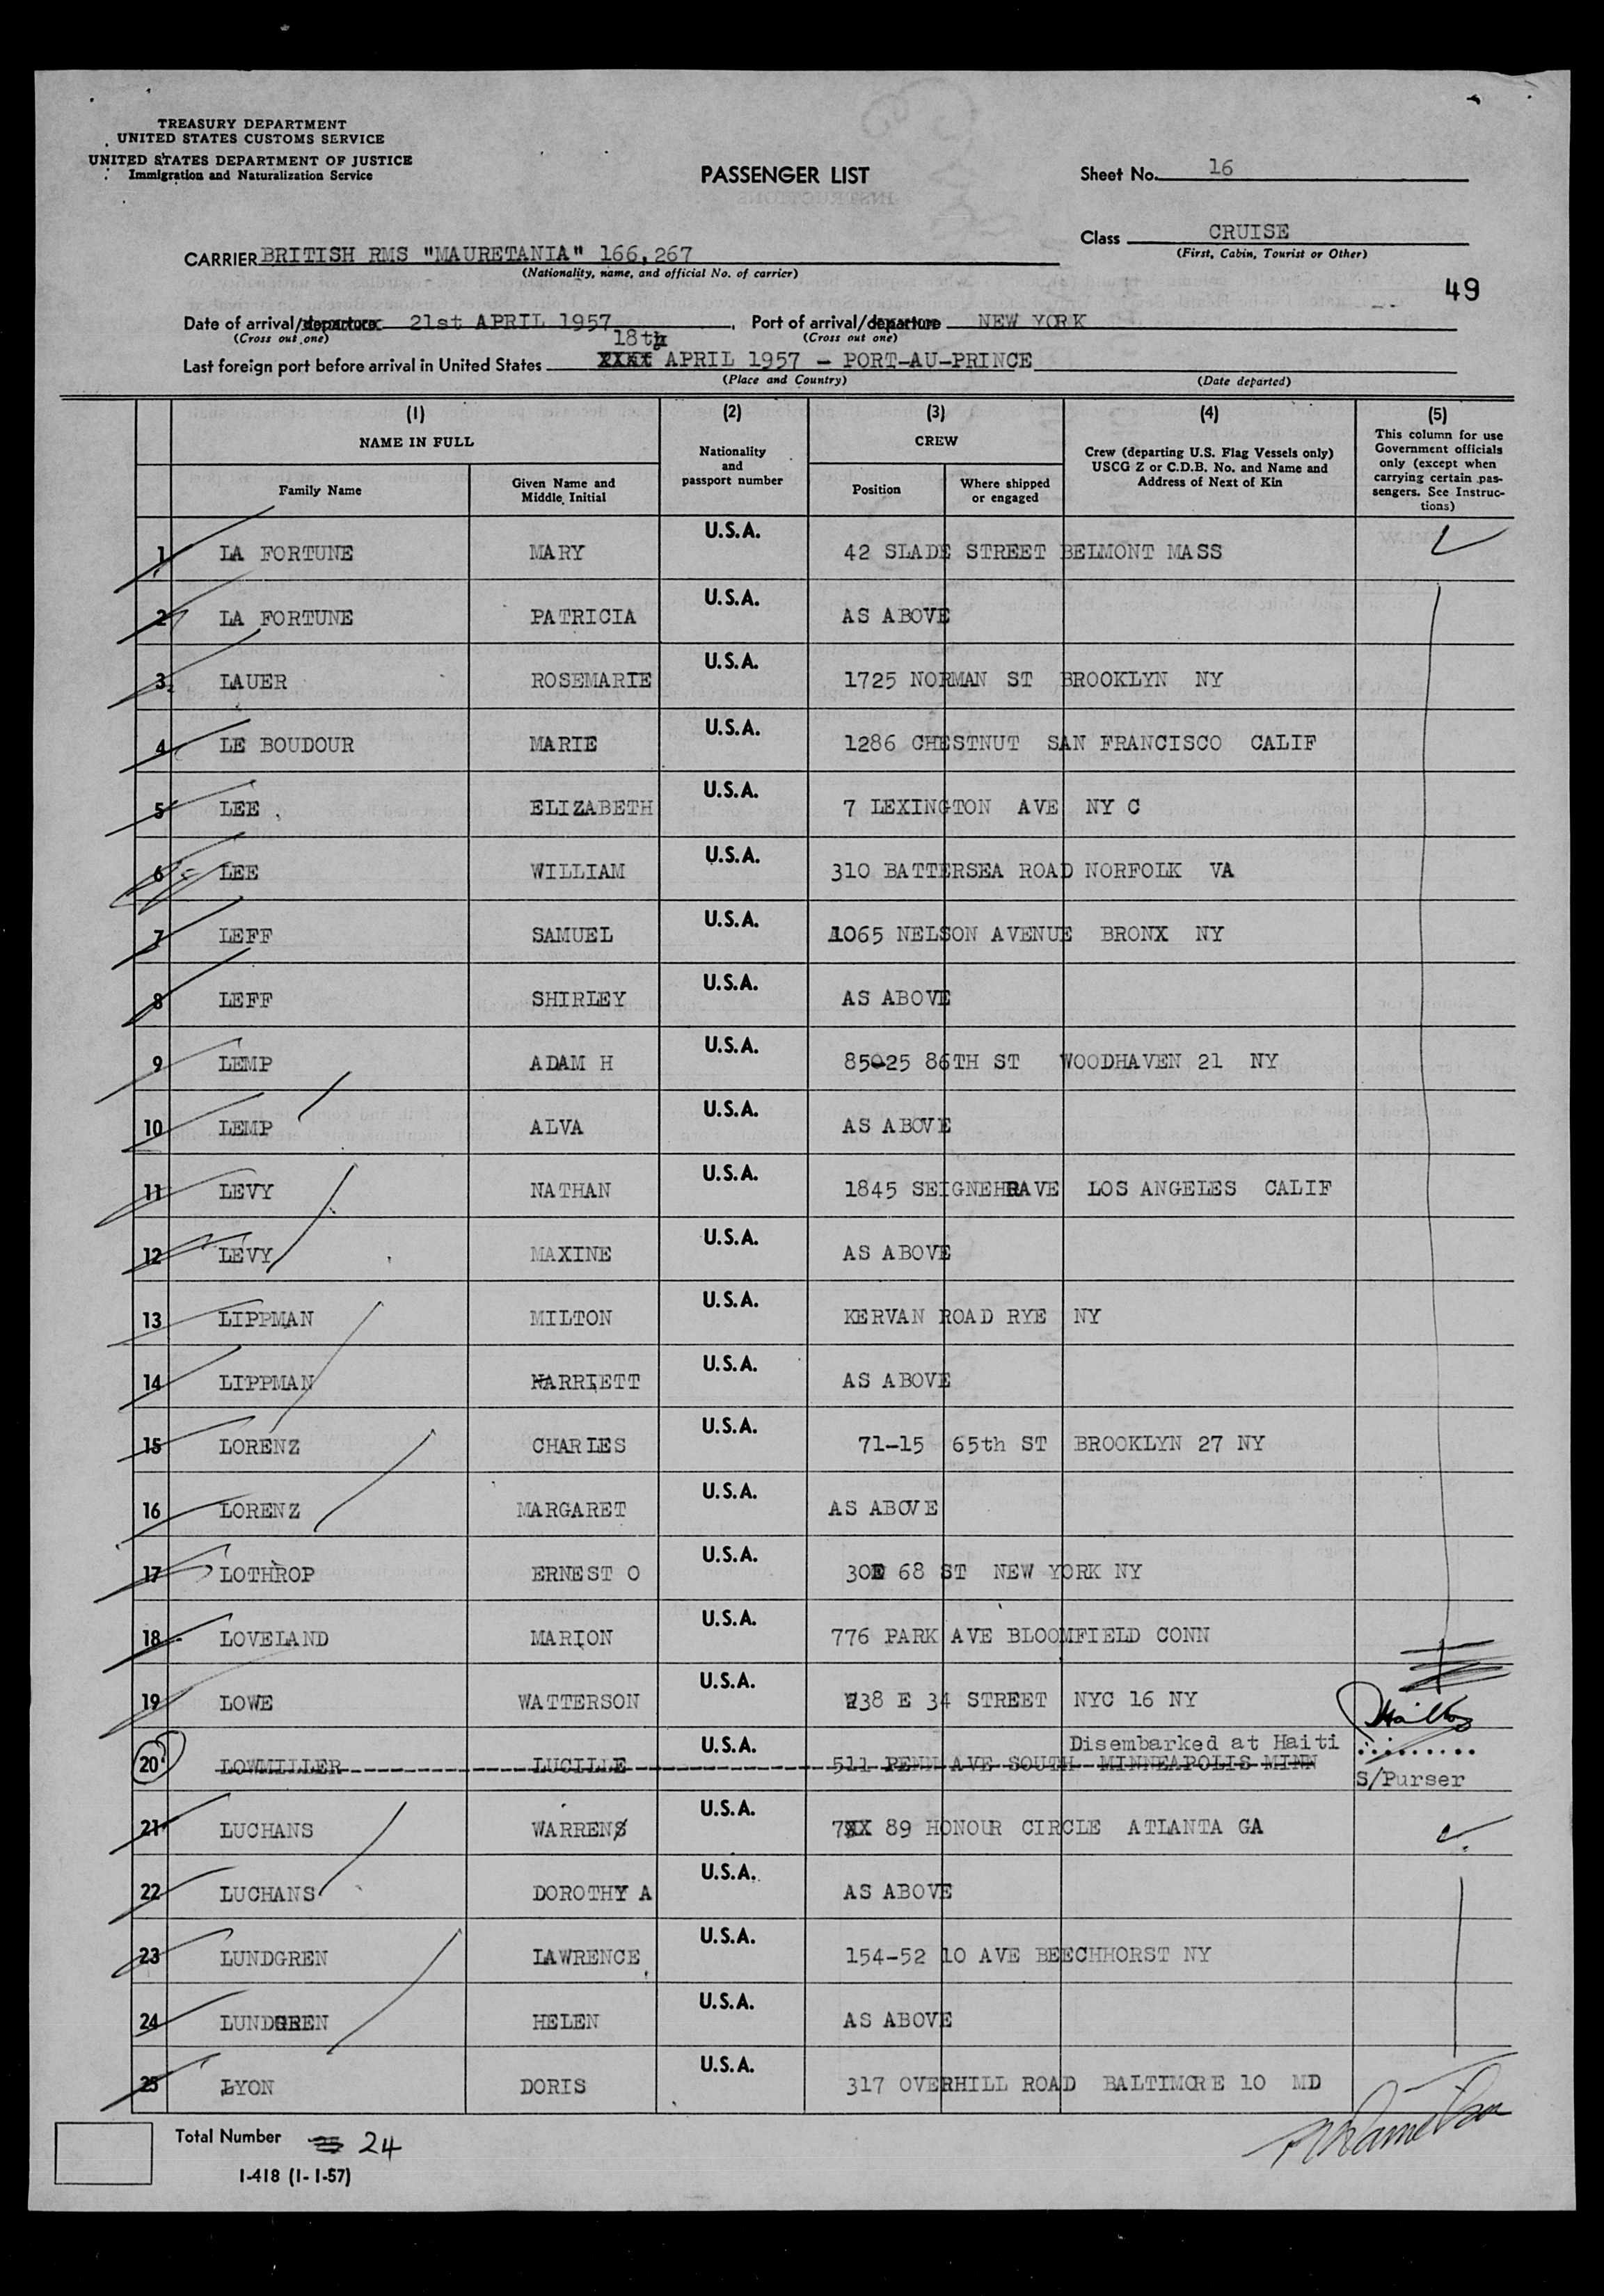 TREASURY DEPARTMENT
UNITED STATES CUSTOMS SERVICE
UNITED STATES DEPARTMENT OF JUSTICE
Immigration and Naturalization Service
PASSENGER LIST
Sheet No. 16
Class CRUISE
(First, Cabin, Tourist or Other)
CARRIER BRITISH RMS "MAURETANIA" 166,267
(Nationality, name, and official No. of carrier)
49
Date of arrival/departure 21st APRIL 1957, Port of arrival/departure NEW YORK
(Cross out one) (Cross out one)
18th
Last foreign port before arrival in United States APRIL 1957 - PORT-AU-PRINCE
(Place and Country) (Date departed)
(1) (2) (3) (4) (5)
NAME IN FULL Nationality and passport number CREW Crew (departing U.S. Flag Vessels only) USCG Z or C.D.B. No. and Name and Address of Next of Kin This column for use Government officials only (except when carrying certain passengers. See Instructions)
Family Name Given Name and Middle Initial Position Where shipped or engaged
1 LA FORTUNE MARY U.S.A. 42 SLADE STREET BELMONT MASS
2 LA FORTUNE PATRICIA U.S.A. AS ABOVE
3 LAUER ROSEMARIE U.S.A. 1725 NORMAN ST BROOKLYN NY
4 LE BOUDOUR MARIE U.S.A. 1286 CHESTNUT SAN FRANCISCO CALIF
5 LEE ELIZABETH U.S.A. 7 LEXINGTON AVE NY C
6 LEE WILLIAM U.S.A. 310 BATTERSEA ROAD NORFOLK VA
7 LEFF SAMUEL U.S.A. 1065 NELSON AVENUE BRONX NY
8 LEFF SHIRLEY U.S.A. AS ABOVE
9 LEMP ADAM H U.S.A. 85-25 86TH ST WOODHAVEN 21 NY
10 LEMP ALVA U.S.A. AS ABOVE
11 LEVY NATHAN U.S.A. 1845 AVE LOS ANGELES CALIF
12 LEVY MAXINE U.S.A. AS ABOVE
13 LIPPMAN MILTON U.S.A. KERVAN ROAD RYE NY
14 LIPPMAN HARRIETT U.S.A. AS ABOVE
15 LORENZ CHARLES U.S.A. 71-15 65th ST BROOKLYN 27 NY
16 LORENZ MARGARET U.S.A. AS ABOVE
17 LOTHROP ERNEST O U.S.A. 30E 68 ST NEW YORK NY
18 LOVELAND MARION U.S.A. 776 PARK AVE BLOOMFIELD CONN
19 LOWE WATTERSON U.S.A. 238 E 34 STREET NYC 16 NY
Disembarked at Haiti
20 LOWMILLER LUCILLE U.S.A. 511 PENN AVE SOUTH MINNEAPOLIS MINN
S/Purser
21 LUCHANS WARREN U.S.A. 89 HONOUR CIRCLE ATLANTA GA
22 LUCHANS DOROTHY A U.S.A. AS ABOVE
23 LUNDGREN LAWRENCE U.S.A. 154-52 10 AVE BEECHHORST NY
24 LUNDGREN HELEN U.S.A. AS ABOVE
25 LYON DORIS U.S.A. 317 OVERHILL ROAD BALTIMORE 10 MD
Total Number 24
I-418 (1-1-57)